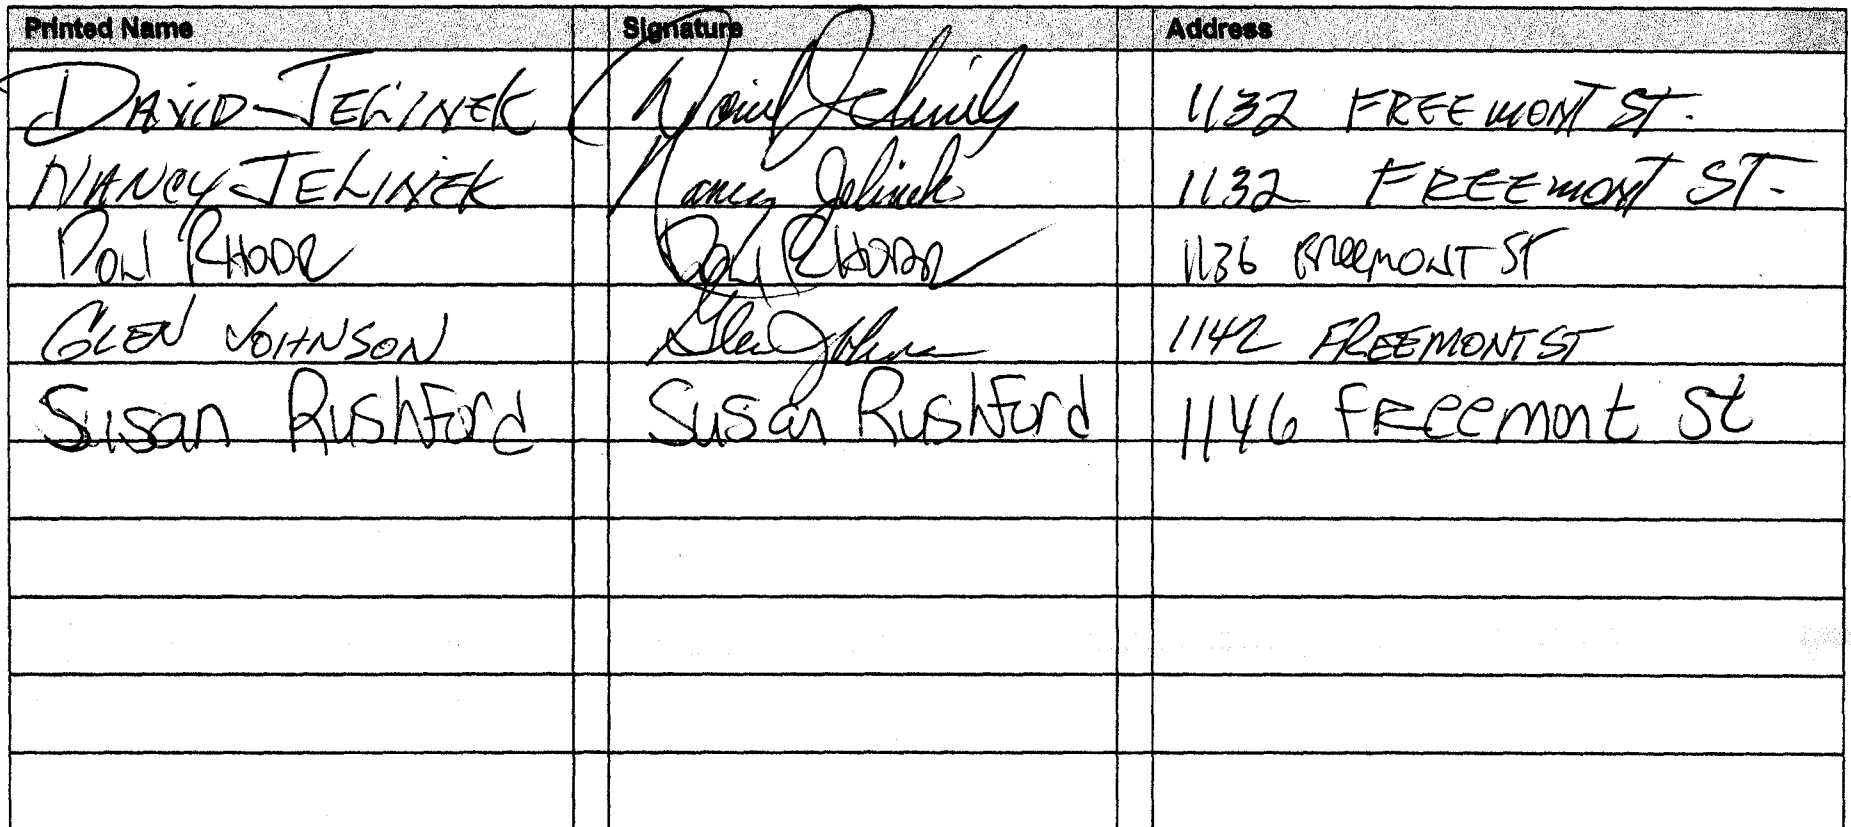 Printed Name Signature Address
DAVID JELINEK David Jelinek 1132 FREEMONT ST.
NANCY JELINEK Nancy Jelinek 1132 FREEMONT ST.
DON DON 1136 FREEMONT ST
GLEN JOHNSON Glen Johnson 1142 FREEMONT ST
Susan Rushford Susan Rushford 1146 FREEmont St